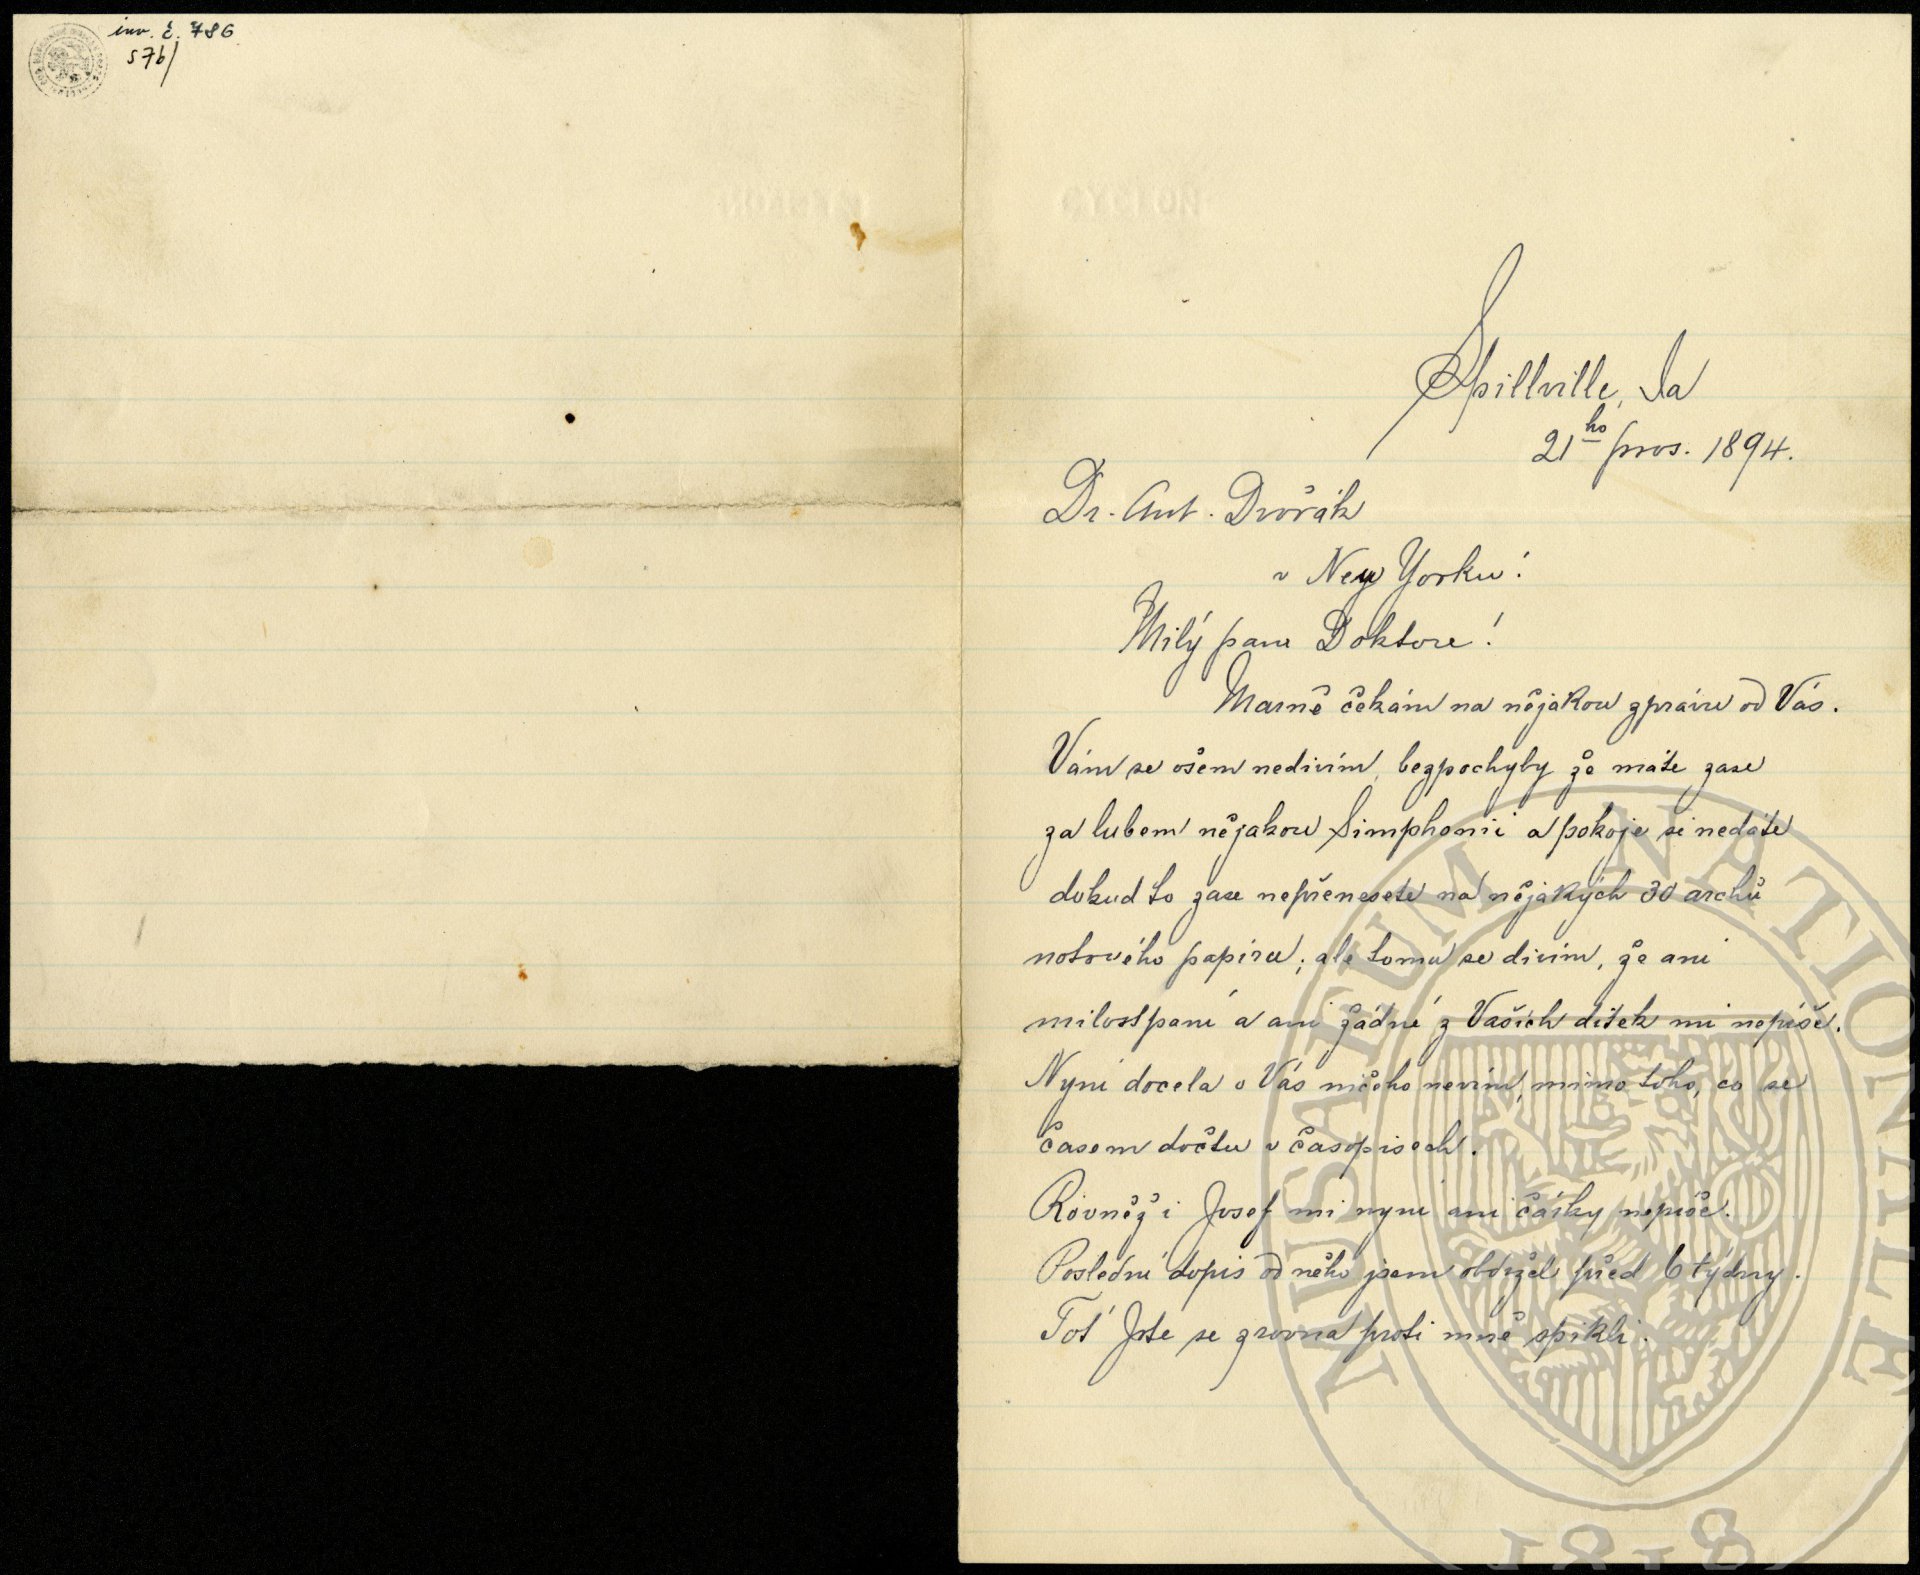 inv. č. 786
s7b/
Spillville, Ia
21ho pros. 1894.
Dr. Ant. Dvořák
v New Yorku!
Milý pane Doktore!
Marně čekám na nějakou zprávu od Vás.
Vám se ošem nedivím, bezpochyby že máte zase
za lubem nějakou Simphonii a pokoje si nedáte
dokud to zase nepřenesete na nějakých 30 archů
notového papíru; ale tomu se divím, že ani
milostpaní a ani žádné z Vašich dítek mi nepíše.
Nyní docela o Vás ničeho nevím, mimo toho, co se
časem dočtu v časopisech.
Rovněž i Josef mi nyní ani čárky nepíše.
Poslední dopis od něho jsem obdržel před 6 týdny.
Toť Jste se zrovna proti mně spikli.
MUSAEUM NATIONALE
1818